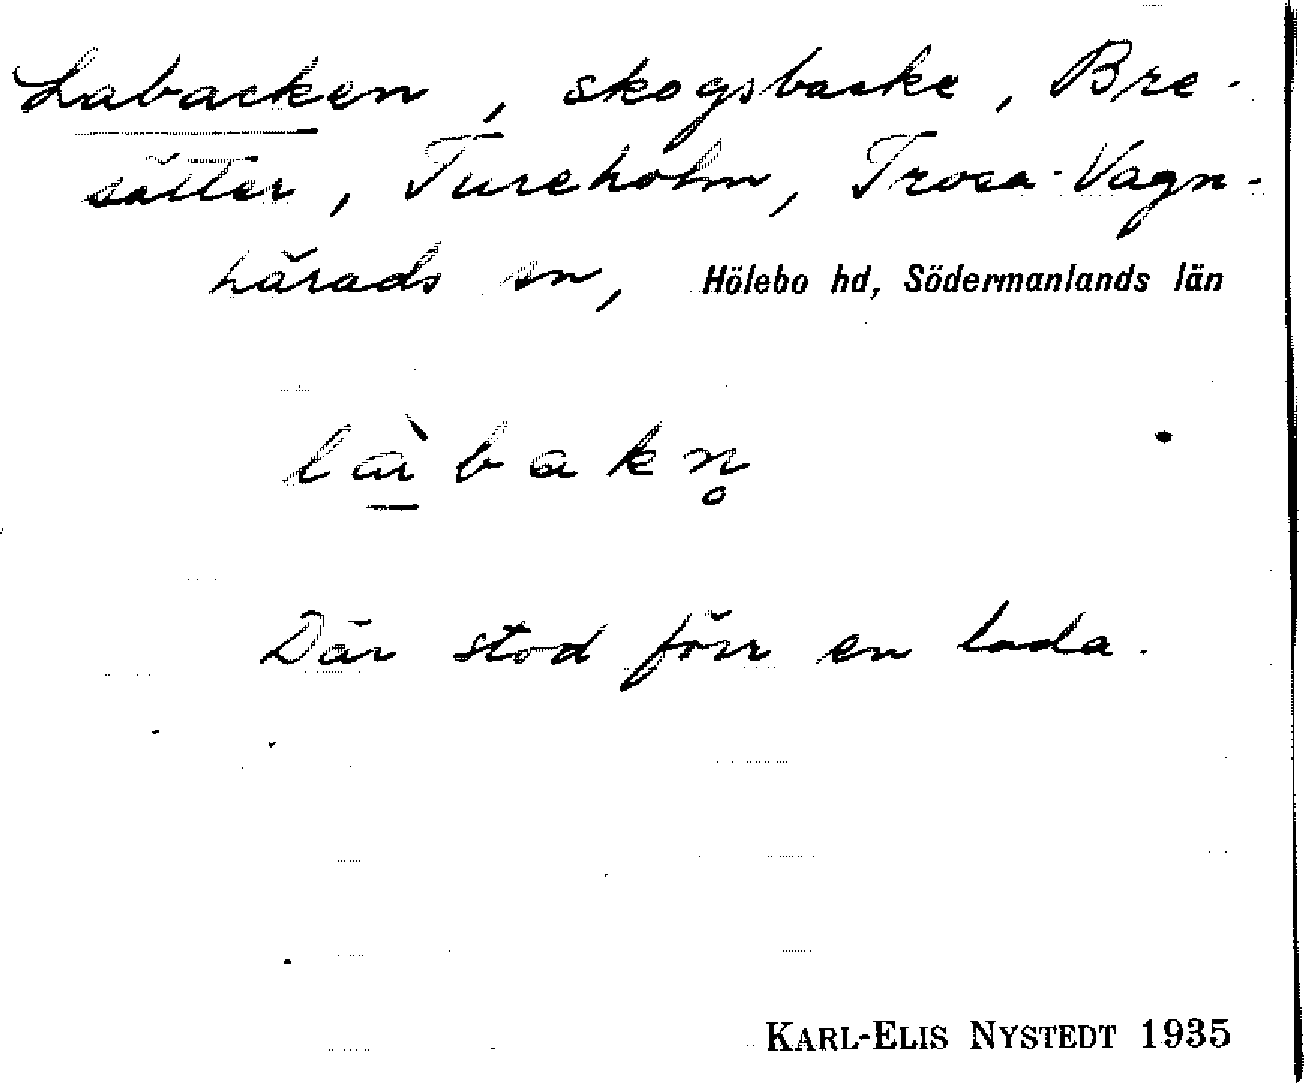 Labacken, skogsbacke, Bre-
sätter, Tureholm, Trosa-Vagn-
härads sn, Hölebo hd, Södermanlands län
là̱bakn̥
Där stod förr en lada.
KARL-ELIS NYSTEDT 1935